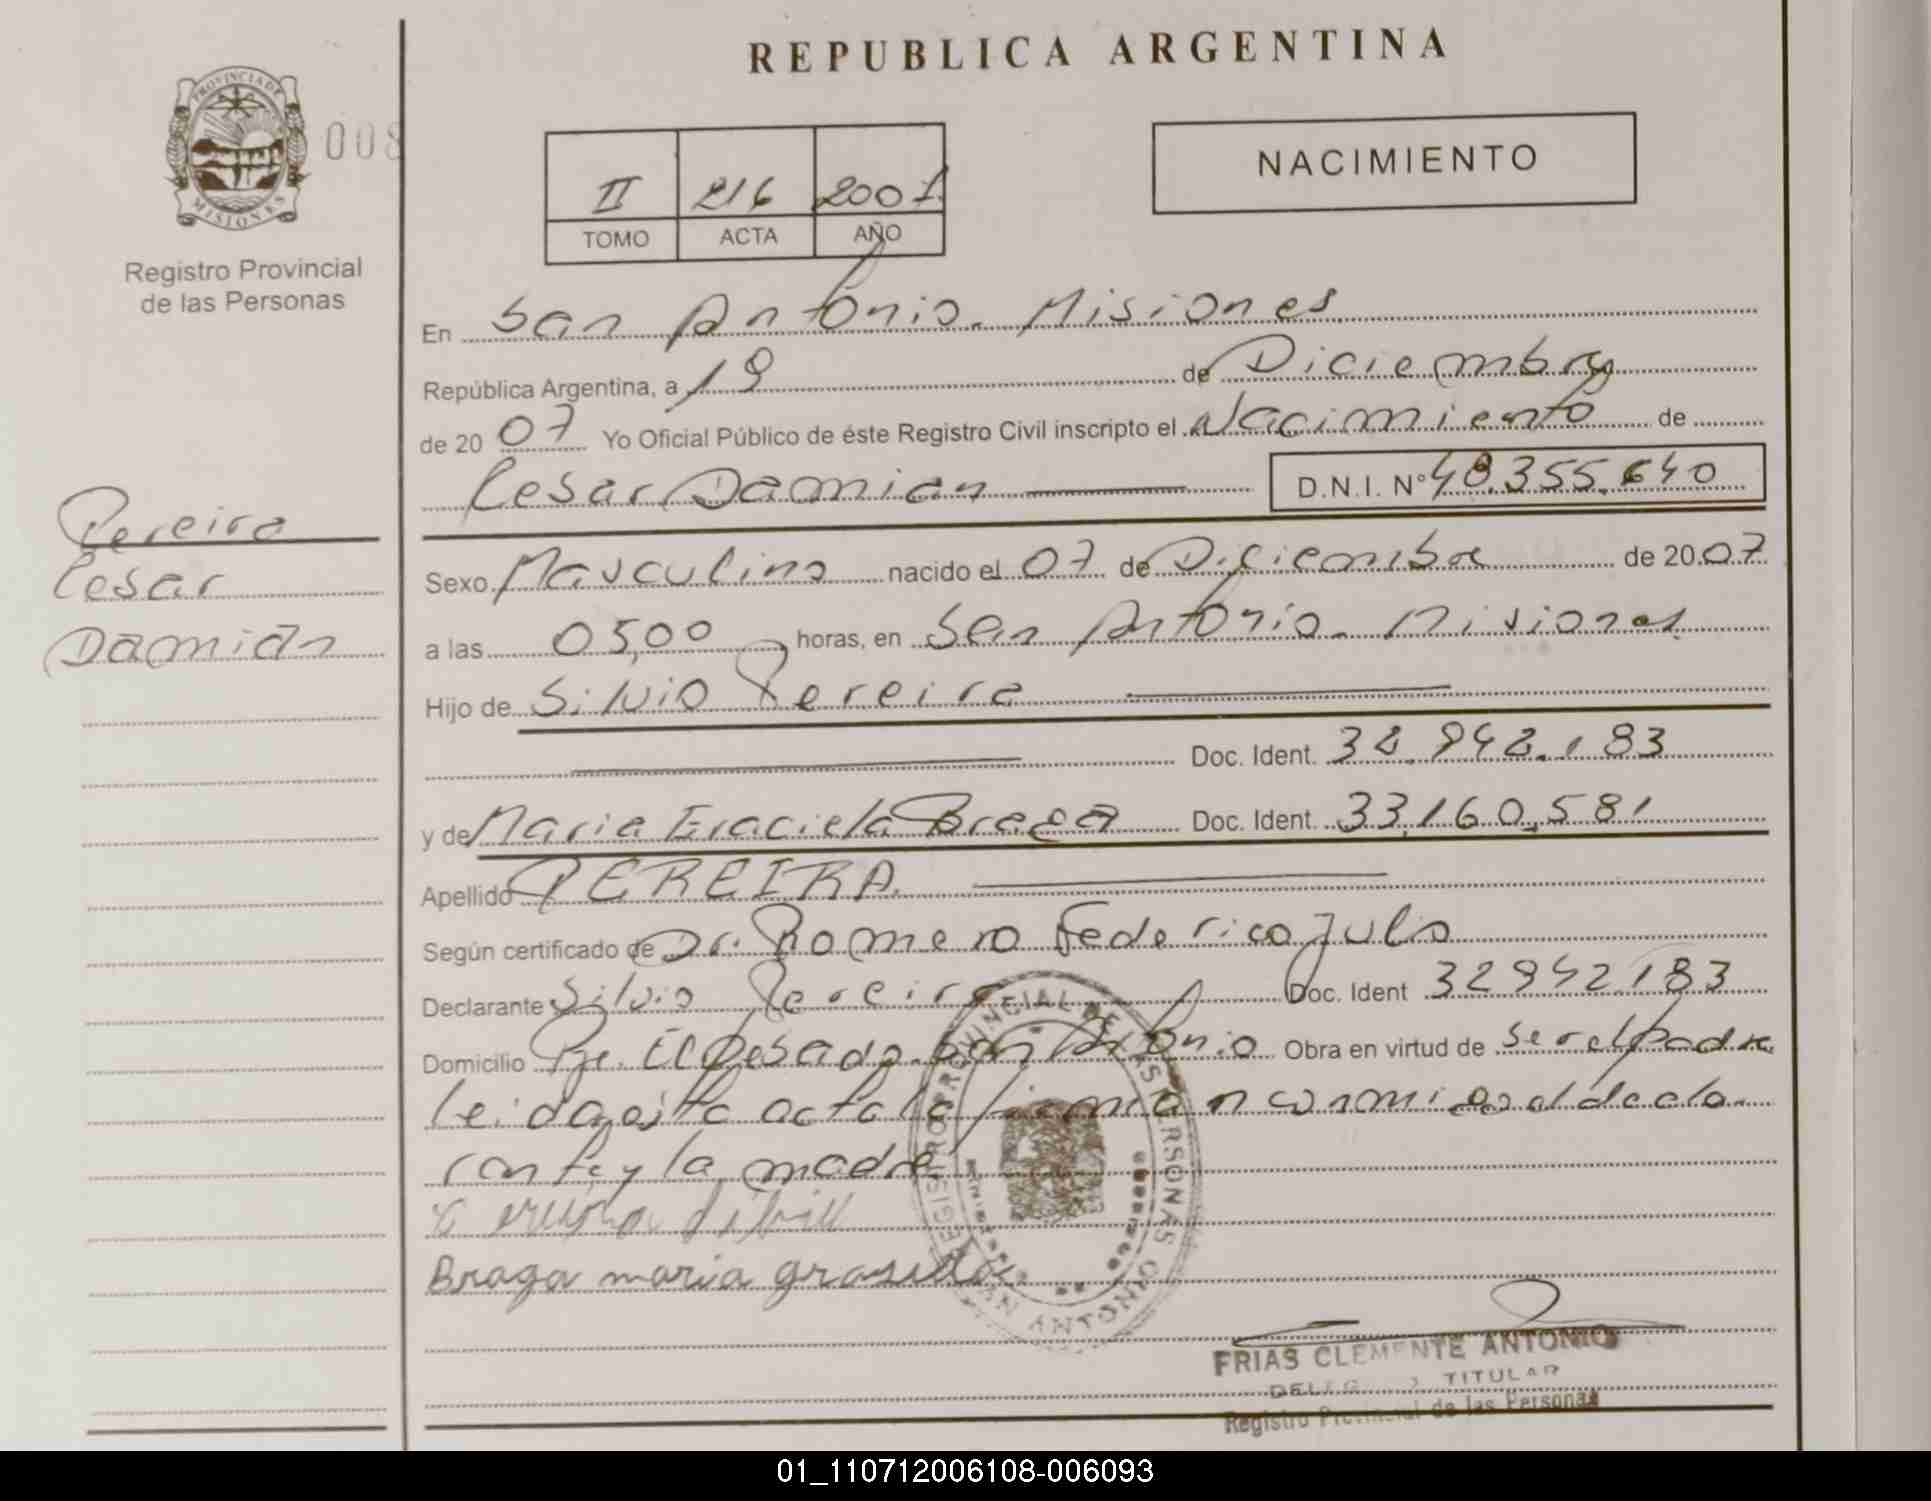 REPUBLICA ARGENTINA
PROVINCIA DE
MISIONES
008
Registro Provincial
de las Personas
NACIMIENTO
II 216 2007
TOMO ACTA AÑO
En San Antonio. Misiones
República Argentina, a 19 de Diciembre
de 20 07 Yo Oficial Público de éste Registro Civil inscripto el Nacimiento de
Cesar Damian D.N.I. N° 48.355.640
Pereira
Cesar
Damián
Sexo Masculino nacido el 07 de Diciembre de 20 07
a las 05,00 horas, en San Antonio. Misiones
Hijo de Silvio Pereira
Doc. Ident. 32.942.183
y de Maria Graciela Braga Doc. Ident. 33,160,581
Apellido PEREIRA
Según certificado de Dr. Romero Federico Julio
Declarante Silvio Pereira Doc. Ident 32942183
Domicilio Pje. El Pesado. San Antonio Obra en virtud de ser el padre
leida esta acta la firman conmigo el decla-
rante y la madre
Braga maria grasiela
REGISTRO PROVINCIAL DE LAS PERSONAS
SAN ANTONIO
FRIAS CLEMENTE ANTONIO
TITULAR
Registro Provincial de las Personas
01_110712006108-006093